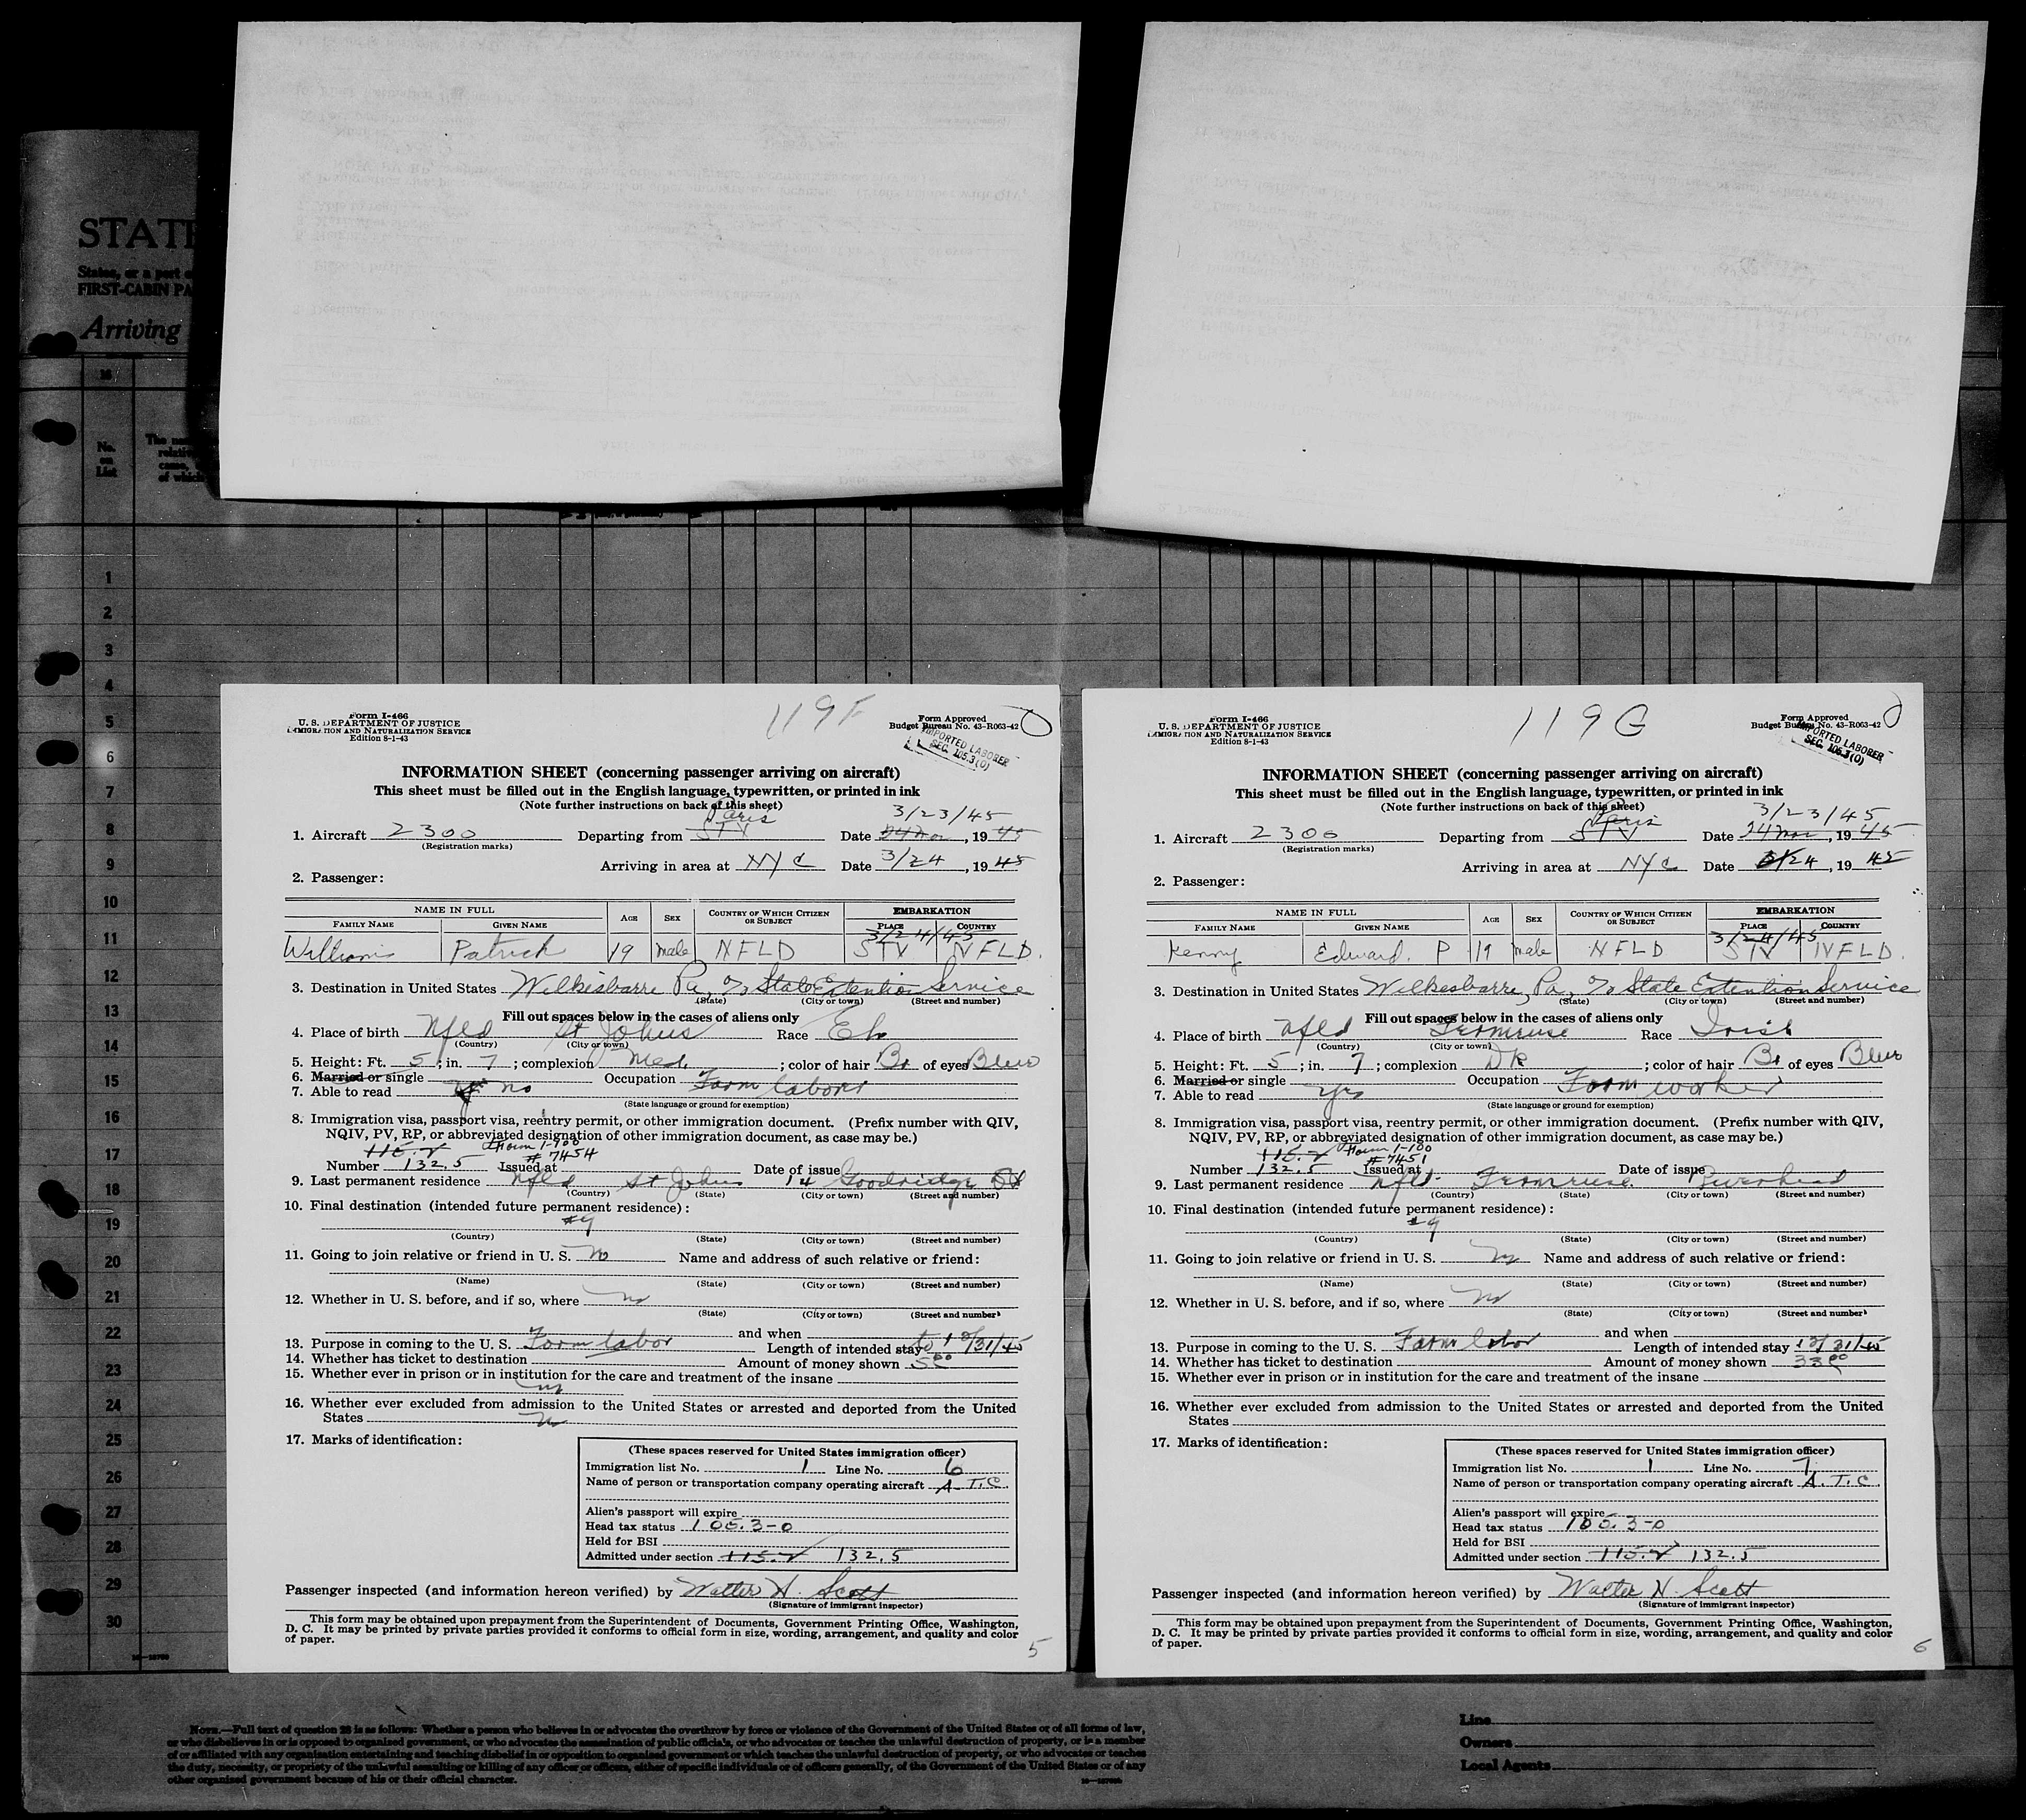 STATE
States, or a part o
FIRST-CABIN PA
Arriving
No. on List
1
2
3
4
5
6
7
8
9
10
11
12
13
14
15
16
17
18
19
20
21
22
23
24
25
26
27
28
29
30
119F
Form I-466
U. S. DEPARTMENT OF JUSTICE
IMMIGRATION AND NATURALIZATION SERVICE
Edition 8-1-43
Form Approved
Budget Bureau No. 43-R063-42
IMPORTED LABORER
SEC. 105.3(O)
INFORMATION SHEET (concerning passenger arriving on aircraft)
This sheet must be filled out in the English language, typewritten, or printed in ink
(Note further instructions on back of this sheet)
Paris 3/23/45
1. Aircraft 2300 Departing from STV Date 24 Mar, 19 45
(Registration marks)
Arriving in area at NYC Date 3/24, 19 45
2. Passenger:
NAME IN FULL AGE SEX COUNTRY OF WHICH CITIZEN OR SUBJECT EMBARKATION
FAMILY NAME GIVEN NAME PLACE COUNTRY
3/24/45
Williams Patrick 19 male NFLD STV NFLD.
3. Destination in United States Wilkesbarre Pa, % State Extention Service
(State) (City or town) (Street and number)
Fill out spaces below in the cases of aliens only
4. Place of birth Nfld St Johns Race Eh
(Country) (City or town)
5. Height: Ft. 5; in. 7; complexion Med. ; color of hair Br of eyes Blue
6. Married or single Occupation Farm labour
7. Able to read no
(State language or ground for exemption)
8. Immigration visa, passport visa, reentry permit, or other immigration document. (Prefix number with QIV,
NQIV, PV, RP, or abbreviated designation of other immigration document, as case may be.)
115.2 Form 1-100
Number 132.5 # 7454 Issued at Date of issue
9. Last permanent residence Nfld St Johns 14 Goodridge St
(Country) (State) (City or town) (Street and number)
10. Final destination (intended future permanent residence):
#9
(Country) (State) (City or town) (Street and number)
11. Going to join relative or friend in U. S. no Name and address of such relative or friend:
(Name) (State) (City or town) (Street and number)
12. Whether in U. S. before, and if so, where no
(State) (City or town) (Street and number)
and when
13. Purpose in coming to the U. S. Farm labor Length of intended stay to 12/31/45
14. Whether has ticket to destination Amount of money shown 5.00
15. Whether ever in prison or in institution for the care and treatment of the insane
no
16. Whether ever excluded from admission to the United States or arrested and deported from the United
States no
17. Marks of identification:
(These spaces reserved for United States immigration officer)
Immigration list No. 1 Line No. 6
Name of person or transportation company operating aircraft A.T.C.
Alien's passport will expire
Head tax status 105.3-0
Held for BSI
Admitted under section 115.2 132.5
Passenger inspected (and information hereon verified) by Walter H. Scott
(Signature of immigrant inspector)
This form may be obtained upon prepayment from the Superintendent of Documents, Government Printing Office, Washington,
D. C. It may be printed by private parties provided it conforms to official form in size, wording, arrangement, and quality and color
of paper.
5
119G
Form I-466
U. S. DEPARTMENT OF JUSTICE
IMMIGRATION AND NATURALIZATION SERVICE
Edition 8-1-43
Form Approved
Budget Bureau No. 43-R063-42
IMPORTED LABORER
SEC. 105.3(O)
INFORMATION SHEET (concerning passenger arriving on aircraft)
This sheet must be filled out in the English language, typewritten, or printed in ink
(Note further instructions on back of this sheet)
Paris 3/23/45
1. Aircraft 2300 Departing from STV Date 24 Mar, 19 45
(Registration marks)
Arriving in area at NYC Date 3/24, 19 45
2. Passenger:
NAME IN FULL AGE SEX COUNTRY OF WHICH CITIZEN OR SUBJECT EMBARKATION
FAMILY NAME GIVEN NAME PLACE COUNTRY
3/24/45
Kenny Edward. P 19 male NFLD STV NFLD.
3. Destination in United States Wilkesbarre, Pa, % State Extention Service
(State) (City or town) (Street and number)
Fill out spaces below in the cases of aliens only
4. Place of birth Nfld Fermeuse Race Irish
(Country) (City or town)
5. Height: Ft. 5; in. 7; complexion DK ; color of hair Br of eyes Blue
6. Married or single Occupation Farm worker
7. Able to read yes
(State language or ground for exemption)
8. Immigration visa, passport visa, reentry permit, or other immigration document. (Prefix number with QIV,
NQIV, PV, RP, or abbreviated designation of other immigration document, as case may be.)
115.2 Form 1-100
Number 132.5 # 7451 Issued at Date of issue
9. Last permanent residence Nfld. Fermeuse. Riverhead
(Country) (State) (City or town) (Street and number)
10. Final destination (intended future permanent residence):
#9
(Country) (State) (City or town) (Street and number)
11. Going to join relative or friend in U. S. no Name and address of such relative or friend:
(Name) (State) (City or town) (Street and number)
12. Whether in U. S. before, and if so, where no
(State) (City or town) (Street and number)
and when
13. Purpose in coming to the U. S. Farm labor Length of intended stay 12/31/45
14. Whether has ticket to destination Amount of money shown 33.00
15. Whether ever in prison or in institution for the care and treatment of the insane
16. Whether ever excluded from admission to the United States or arrested and deported from the United
States
17. Marks of identification:
(These spaces reserved for United States immigration officer)
Immigration list No. 1 Line No. 7
Name of person or transportation company operating aircraft A.T.C.
Alien's passport will expire
Head tax status 105.3-0
Held for BSI
Admitted under section 115.2 132.5
Passenger inspected (and information hereon verified) by Walter H. Scott
(Signature of immigrant inspector)
This form may be obtained upon prepayment from the Superintendent of Documents, Government Printing Office, Washington,
D. C. It may be printed by private parties provided it conforms to official form in size, wording, arrangement, and quality and color
of paper.
6
NOTE.—Full text of question 28 is as follows: Whether a person who believes in or advocates the overthrow by force or violence of the Government of the United States or of all forms of law,
or who disbelieves in or is opposed to organized government, or who advocates the assassination of public officials, or who advocates or teaches the unlawful destruction of property, or is a member
of or affiliated with any organization entertaining and teaching disbelief in or opposition to organized government or which teaches the unlawful destruction of property, or who advocates or teaches
the duty, necessity, or propriety of the unlawful assaulting or killing of any officer or officers, either of specific individuals or of officers generally, of the Government of the United States or of any
other organized government because of his or their official character.
Line
Owners
Local Agents